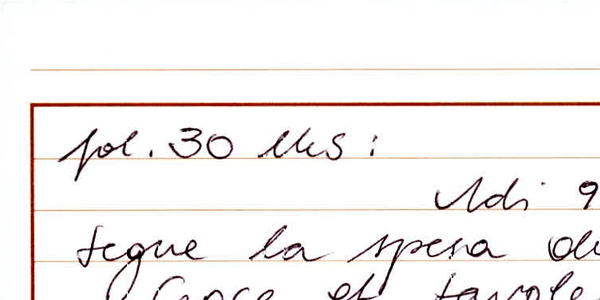 fol. 30 Ms :
Adi 9
segue la spesa
Croce et tavole